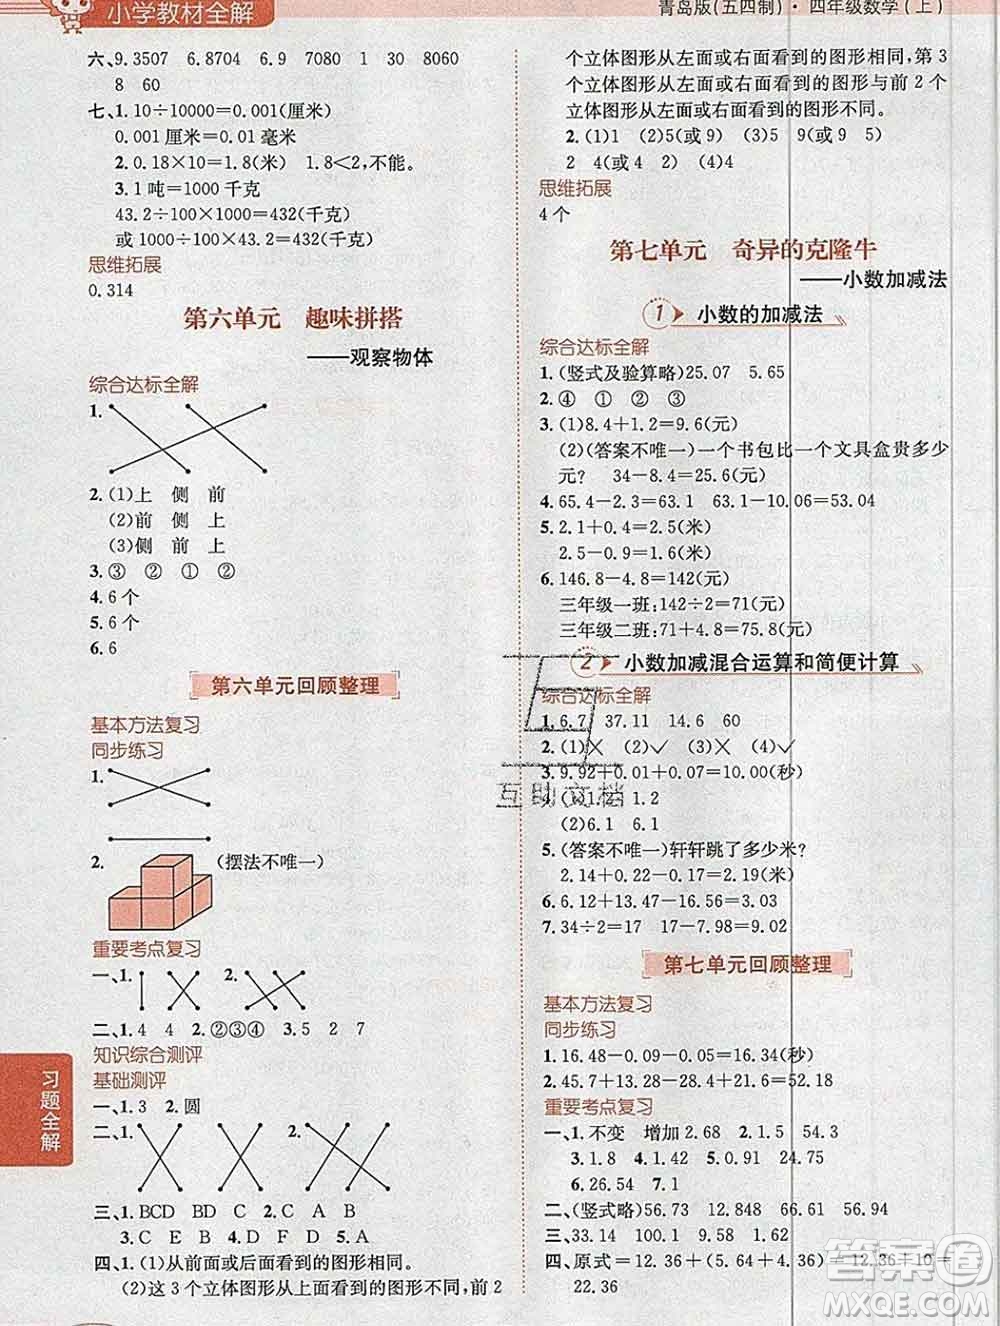 小学教材全解
青岛版(五四制)·四年级数学(上)
六、9.3507 6.8704 6.9 7080 1 30 8060
8 60
七、1.10÷10000=0.001(厘米)
0.001厘米=0.01毫米
2.0.18×10=1.8(米) 1.8<2,不能。
3.1吨=1000千克
43.2÷100×1000=432(千克)
或1000÷100×43.2=432(千克)
思维拓展
0.314
第六单元 趣味拼搭
——观察物体
综合达标全解
1.
2.(1)上 侧 前
(2)前 侧 上
(3)侧 前 上
3.③ ② ① ②
4.6个
5.6个
6.6
第六单元回顾整理
基本方法复习
同步练习
1.
2. (摆法不唯一)
重要考点复习
一、1. 2. 3.
二、1.4 4 2.②③④ 3.5 2 7
知识综合测评
基础测评
一、1.3 2.圆
二、1. 2.
三、1.BCD BD C 2.C A B
3.C E B 4.A F D 5.D B
四、1.(1)从前面或后面看到的图形相同。
(2)这3个立体图形从上面看到的图形不同,前2
个立体图形从左面或右面看到的图形相同,第3
个立体图形从左面或右面看到的图形与前2个
立体图形从左面或右面看到的图形不同。
2.(1)1 (2)5(或9) (3)5 9 5)
2 4(或4 2) (4)4
思维拓展
4个
第七单元 奇异的克隆牛
——小数加减法
1 小数的加减法
综合达标全解
1.(竖式及验算略)25.07 5.65
2.④ ① ② ③
3.(1)8.4+1.2=9.6(元)
(2)(答案不唯一)一个书包比一个文具盒贵多少
元? 34-8.4=25.6(元)
4.65.4-2.3=63.1 63.1-10.06=53.04
5.2.1+0.4=2.5(米)
2.5-0.9=1.6(米)
6.146.8-4.8=142(元)
三年级一班:142÷2=71(元)
三年级二班:71+4.8=75.8(元)
2 小数加减混合运算和简便计算
综合达标全解
1.6.7 37.11 14.6 60
2.(1)× (2)✓ (3)× (4)✓
3.9.92+0.01+0.07=10.00(秒)
4.(1)1.2 1.2
(2)6.1 6.1
5.(答案不唯一)轩轩跳了多少米?
2.14+0.22-0.17=2.19(米)
6.6.12+13.47+0.41=20(元)
7.34÷2=17 17-7.98=9.02
第七单元回顾整理
基本方法复习
同步练习
1.16.48-0.09-0.05=16.34(秒)
2.45.7+13.8-12.25=47.25(元)
重要考点复习
一、1.不变 增加2.68 2.50 54.3
3.1.8 4.42.85 5.14.4
6.26.54 7.1
二、(竖式略)56.73 12.848 28.66 56.94
三、33.14 100.1 9.08 1.62
四、原式=12.36+(5.64+4.36)=12.36+10=
22.36
习题全解
互助文档
答案圈
MXQE.COM